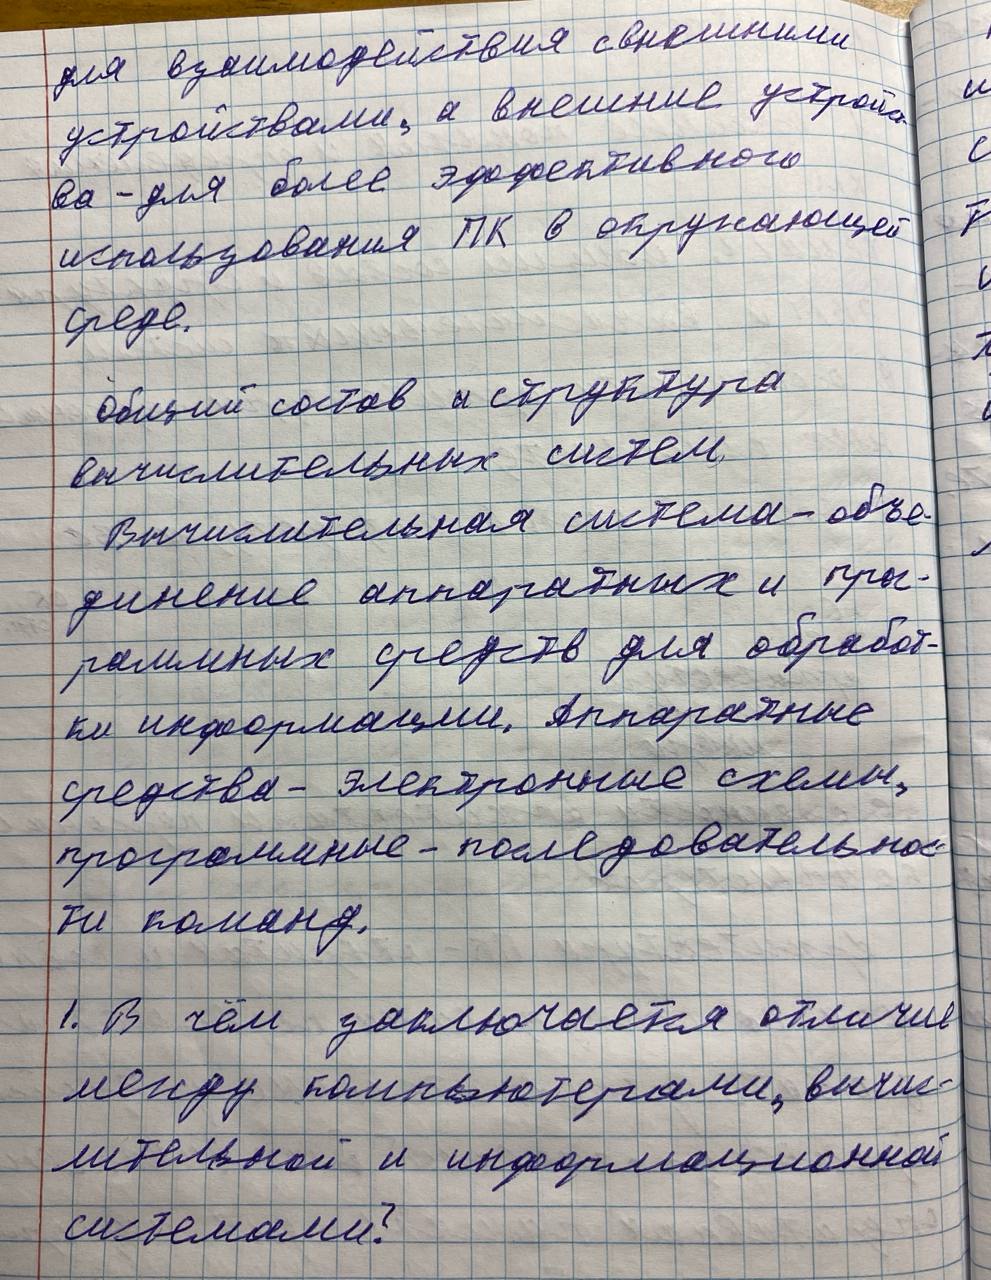 для взаимодействия с внешними
устройствами, а внешние устройст-
ва - для более эффективного
использования ПК в окружающей
среде.
Общий состав и структура
вычислительных систем.
Вычислительная система - объе-
динение аппаратных и прог-
раммных средств для обработ-
ки информации. Аппаратные
средства - электронные схемы,
програмные - последовательнос-
ти команд.
1. В чём заключается отличие
между компьютерами, вычис-
лительной и информационной
системами?